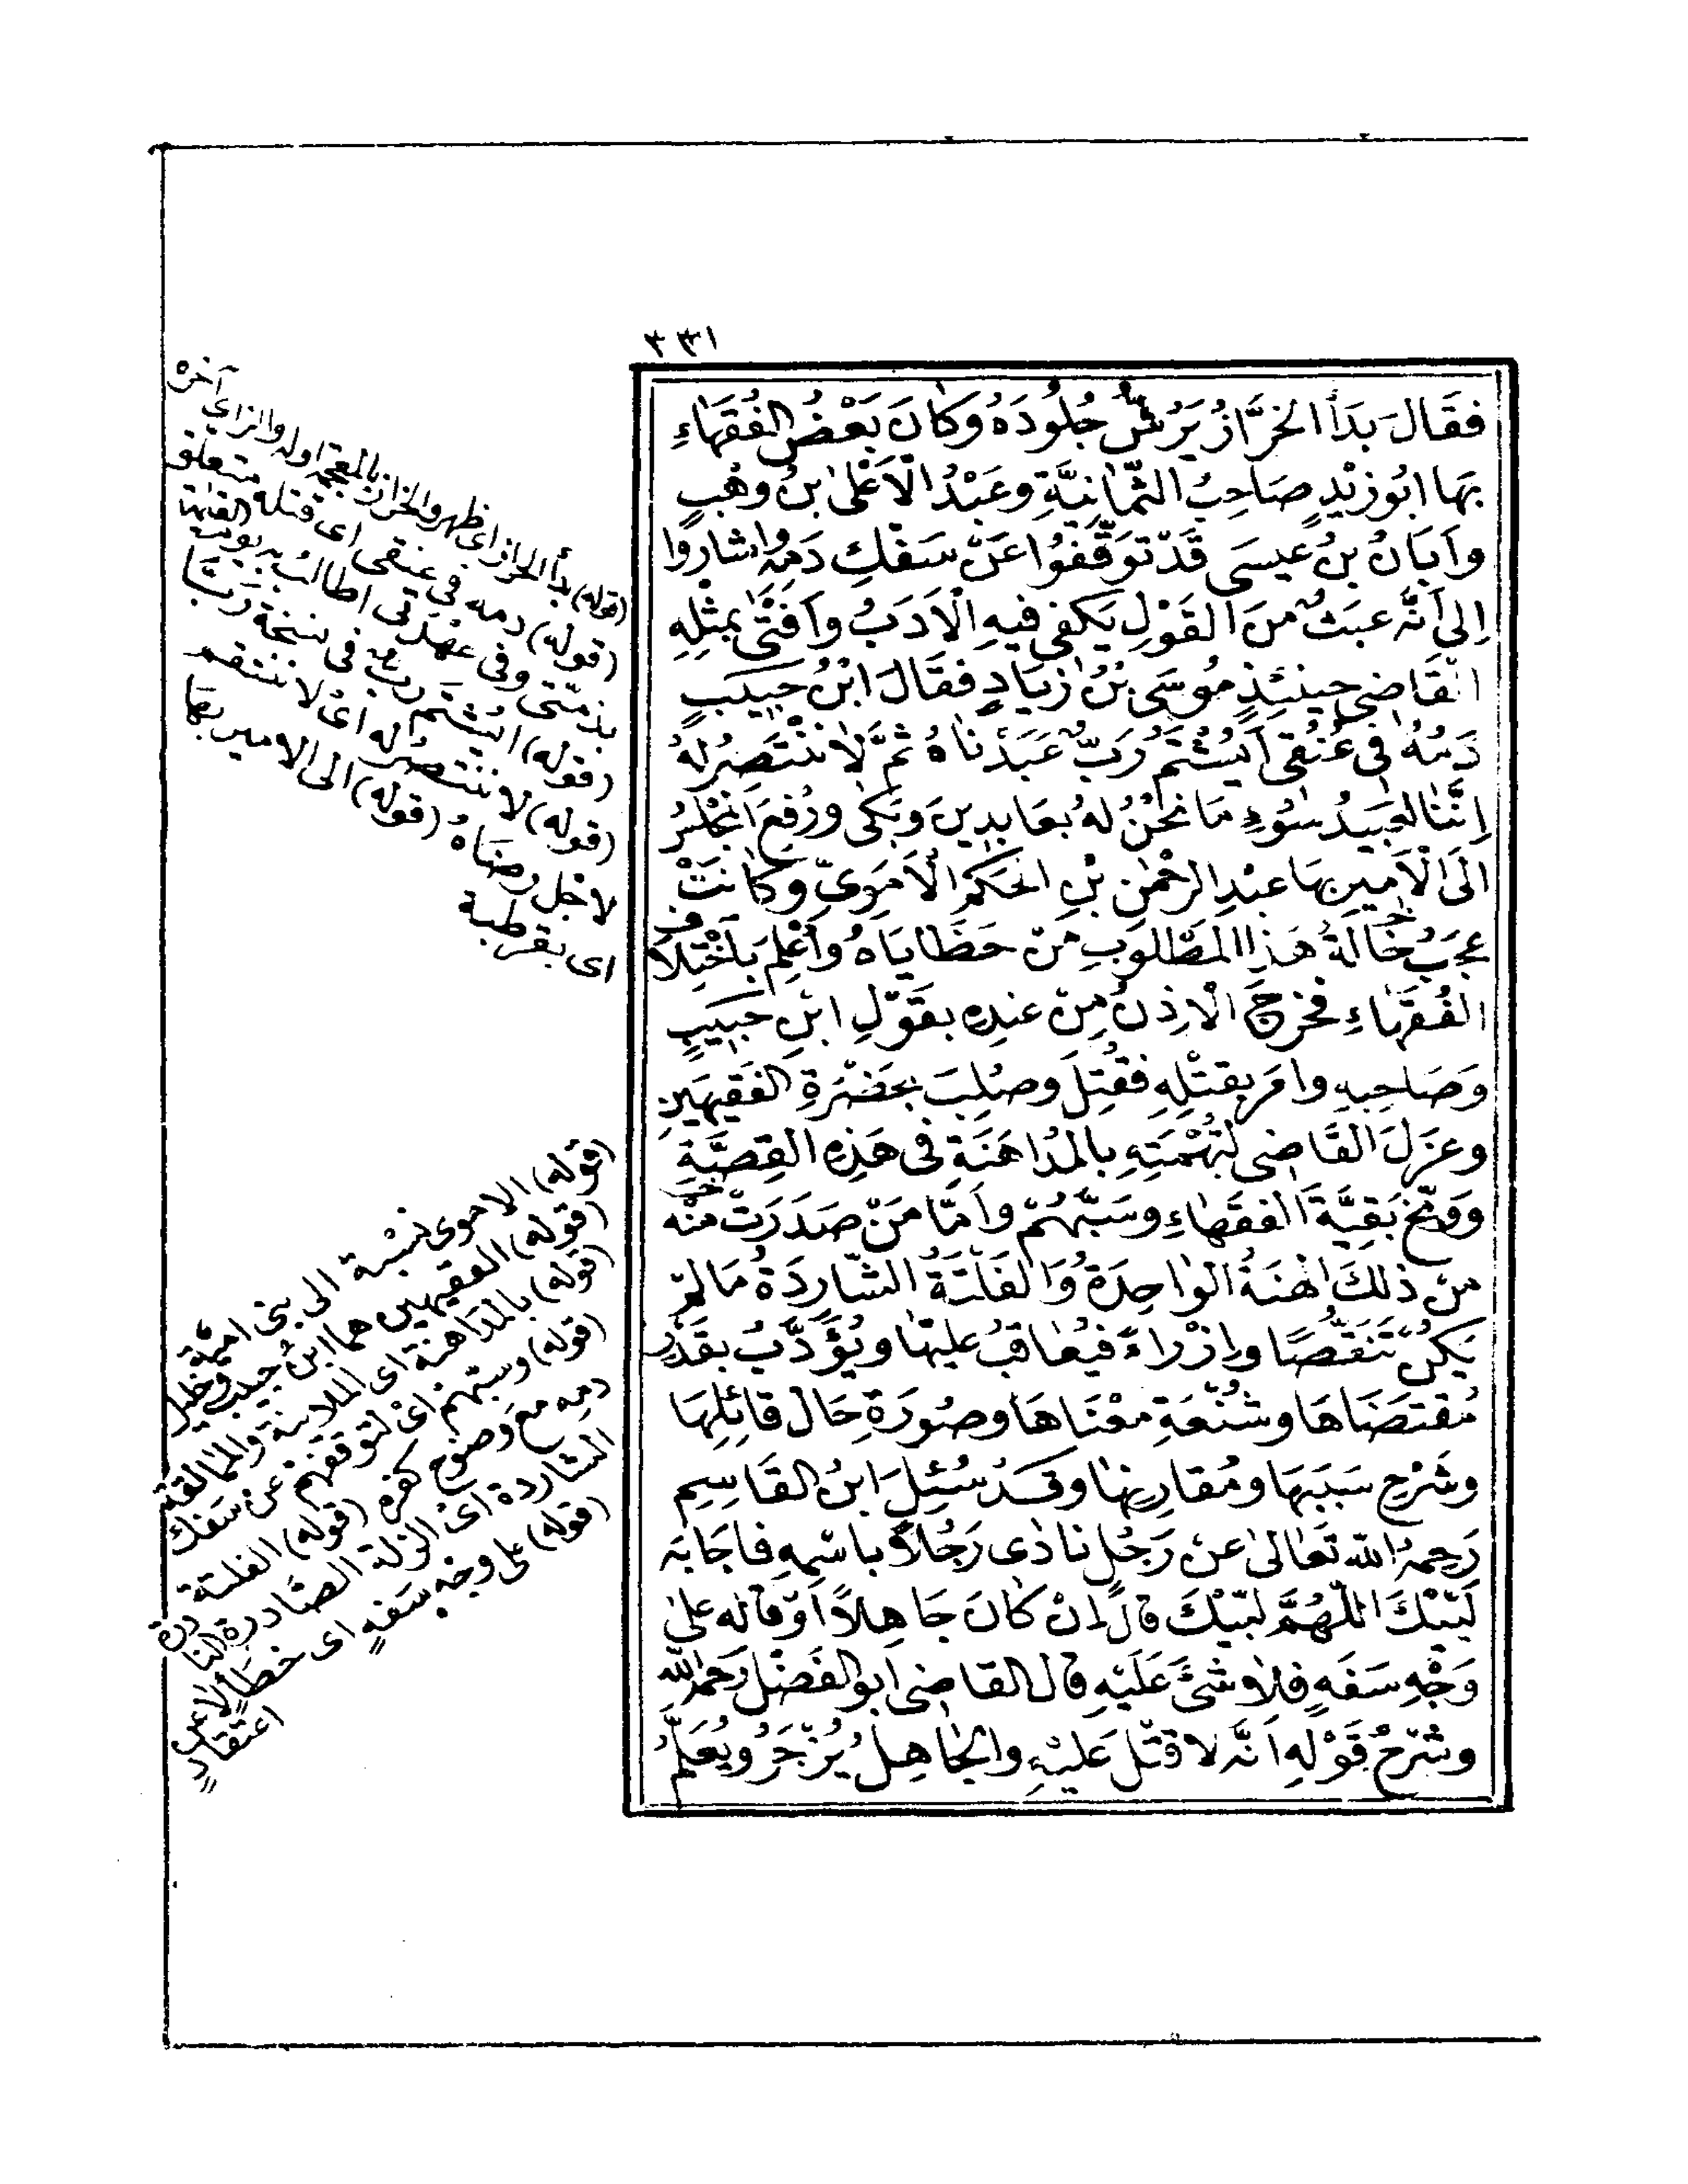 ٣٣١
فَقَالَ بَدَأَ الخَرَّازُ يَرُشُّ جُلُودَهُ وَكَانَ بَعْضُ الفُقَهَاءِ
بِهَا ابُوزَيْدٍ صَاحِبُ الثَّمَانِيَّةِ وعَبْدُ الْاَعْلىٰ بنُ وهْبٍ
وَاَبَانُ بنُ عيسَى قَدْ تَوَقَّفُوا عَنْ سَفْكِ دَمِهِ واشارُوا
اِلىٰ اَنَّهُ عَبَثٌ منَ القَوْلِ يَكْفى فيهِ الْاَدَبُ وَاَفْتىٰ بمِثْلِهِ
القَاضى حينَئِذٍ مُوسَى بْنُ زيَادٍ فقَالَ ابْنُ حَبيبٍ
دَمُهُ فى عُنُقى اَيُشْتَمُ رَبٌّ عَبَدْنَاهُ ثُمَّ لَا نَنْتَصِرُ لهُ
اِنَّنَا لعَبيدُ سُوءٍ مَا نَحْنُ لهُ بعَابِدِينَ وَبَكى ورُفِعَ المَجْلسُ
الَى الْاَميرِ بهَا عبْدِ الرحْمٰنِ بْنِ الحَكَمِ الْاُمَوِىِّ وكَانَتْ
عَجَبُ خَالَةُ هَذا المَطْلُوبِ مِنْ حَظَايَاهُ وَاُعْلِمَ بِاخْتِلَافِ
الفُقَهَاءِ فخَرجَ الْاِذنُ مِنْ عندِهِ بقَوْلِ ابْنِ حَبيبٍ
وَصَاحِبِهِ وامَرَ بقتْلِهِ فقُتِلَ وصُلِبَ بحَضْرَةِ الفَقيهَينِ
وعَزلَ القَاضِى لتُهْمَتِهِ بالمُدَاهَنَةِ فى هَذِهِ القِصَّةِ
وَوَبَّخَ بَقيَّةَ الفقَهاءِ وسَبَّهُمْ وَاَمَّا مَنْ صَدَرَتْ مِنْهُ
منْ ذٰلكَ الهَنَةُ الواحِدَةُ وَالفَلْتَةُ الشَّارِدَةُ مَالَمْ
يَكُنْ تَنَقُّصًا واِزْراءً فيُعَاقَبُ عليْهَا ويُؤَدَّبُ بقَدْرِ
مُقتَضَاهَا وشُنْعَةِ معْنَاهَا وصُورَةِ حَال قائِلِهَا
وشَرْحِ سَبَبِهَا ومُقَارِنِهَا وقَدْ سُئِلَ ابْنُ القَاسِمِ
رَحِمَهُ اللّٰه تَعَالىٰ عنْ رَجُلٍ نادٰى رَجُلًا باسْمِهِ فاجَابَهُ
لَبَّيْكَ اللّٰهُمَّ لبَّيْكَ قالَ اِنْ كانَ جَاهِلًا اَوْ قالهُ علىٰ
وَجْهِ سَفَهٍ فلَا شَىْءَ عَلَيْهِ قال القاضِى ابو الفَضْل رَحمهُ اللّٰه
وشَرْحُ قَوْلِهِ اَنَّهُ لا قَتْلَ عَليْهِ والجَاهِلُ يُزْجَرُ ويُعَلَّمُ
(قوله) بدأ الخراز اى ظهر والخراز بالمعجمة اوله والزاى آخره
(قوله) دمه فى عنقى اى قتله متعلق
بذمتى وفى عهدتى اطالب به يوم القيامة
(قوله) ايشتم رب وفى نسخة ربّنا
(قوله) لا ننتصر له اى لا ننتقم
لاجل رضاه (قوله) الى الامير بها
اى بقرطبة
(قوله) الاموى نسبة الى بنى امية
(قوله) الفقيهين هما ابن حبيب وخليل
(قوله) بالمداهنة اى الملاينة والمالقة
(قوله) وسبهم اى لتوقفهم عن سفك
دمه مع وضوح كفره (قوله) الفلتة
الشاردة اى الزلة الصادرة النادرة
(قوله) على وجه سفه اى خطأ لا عن
اعتقاد